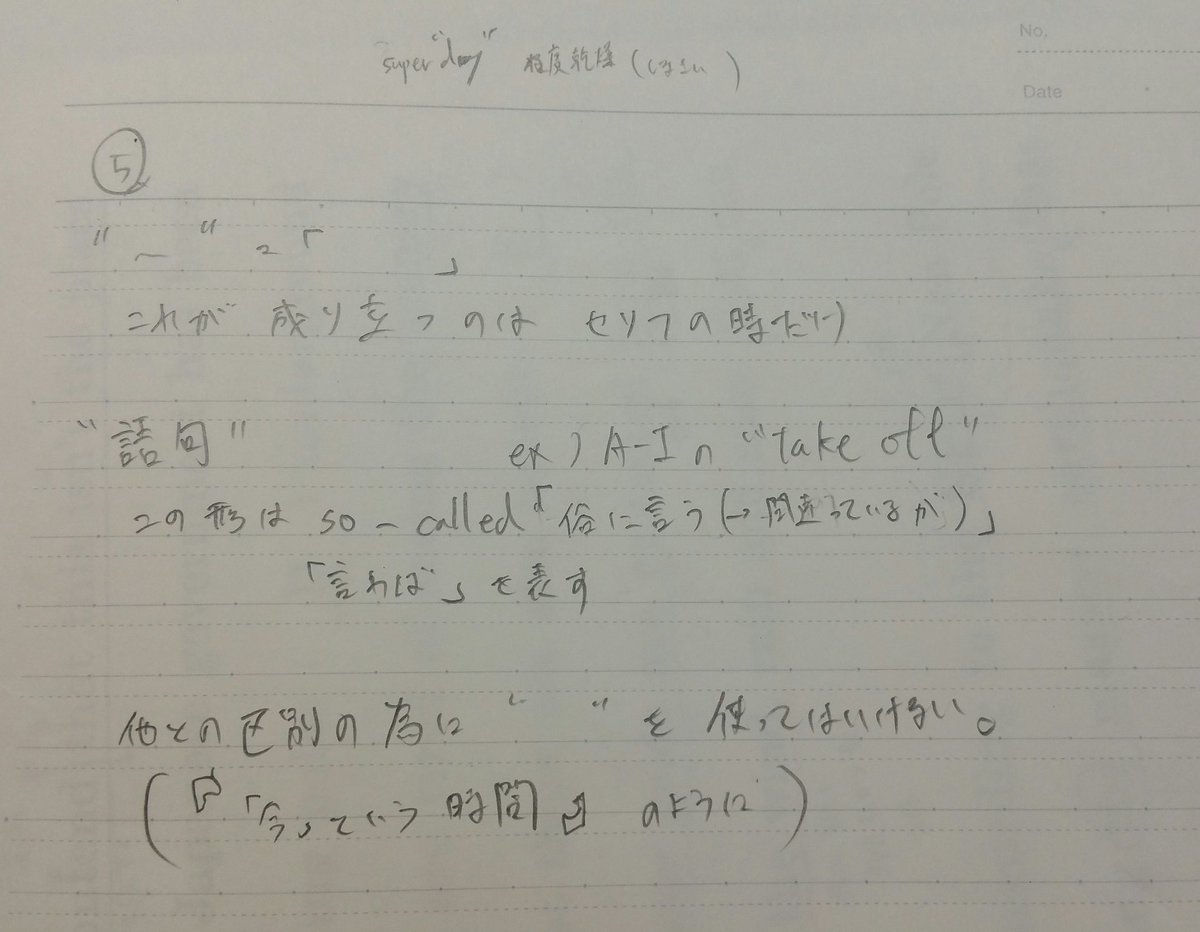 super "dry" 程度乾燥(しなさい)
No.
Date
⑤
"～" = 「 」
これが 成り立つ のは セリフの時だけ
"語句" ex) A-I の "take off"
この形は so-called 「俗に言う(→間違っているが)」
「言わば」を表す
他との区別の為に " " を 使ってはいけない。
(『「今っていう時間』のように)